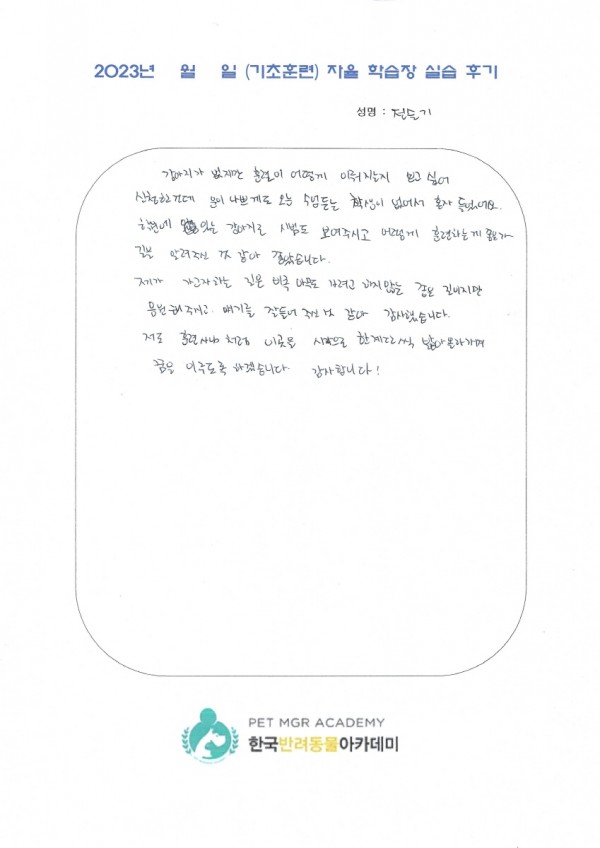 2023년 월 일 (기초훈련) 자율 학습장 실습 후기
성명 : 전슬기
강아지가 없지만 훈련이 어떻게 이뤄지는지 보고 싶어
신청하건데 운이 나쁘게도 오늘 수업듣는 학생이 없어서 혼자 들었네요.
한번에 있는 강아지로 시범도 보여주시고 어떻게 훈련하는게 좋은가
길을 알려주신 것 같아 좋았습니다.
제가 가고자하는 길은 비록 아무도 가려고 하지않는 좁은 길이지만
응원해주시고 얘기를 잘들어 주신 것 같아 감사했습니다.
저도 훈련사님 처럼 이곳을 시작으로 한계단씩 밟아올라가며
꿈을 이루도록 하겠습니다. 감사합니다!
PET MGR ACADEMY
한국반려동물아카데미